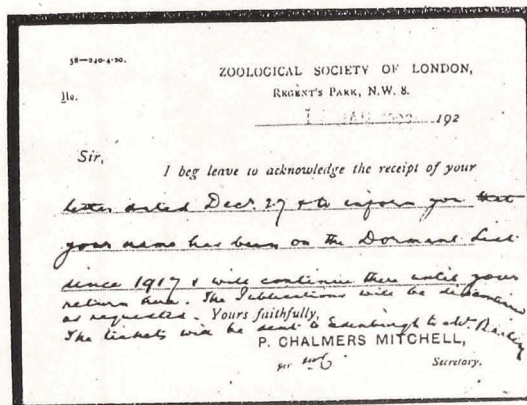 38—240-4-20.
ZOOLOGICAL SOCIETY OF LONDON,
REGENT'S PARK, N.W. 8.
No.
JAN 192
Sir,
I beg leave to acknowledge the receipt of your
letter dated Decr. 27 & to inform you that
your name has been on the Dormant List
since 1917 & will continue there until your
return here. The Publications will be
as requested. Yours faithfully,
The tickets will be sent to Edinburgh to Mr.
P. CHALMERS MITCHELL,
per
Secretary.